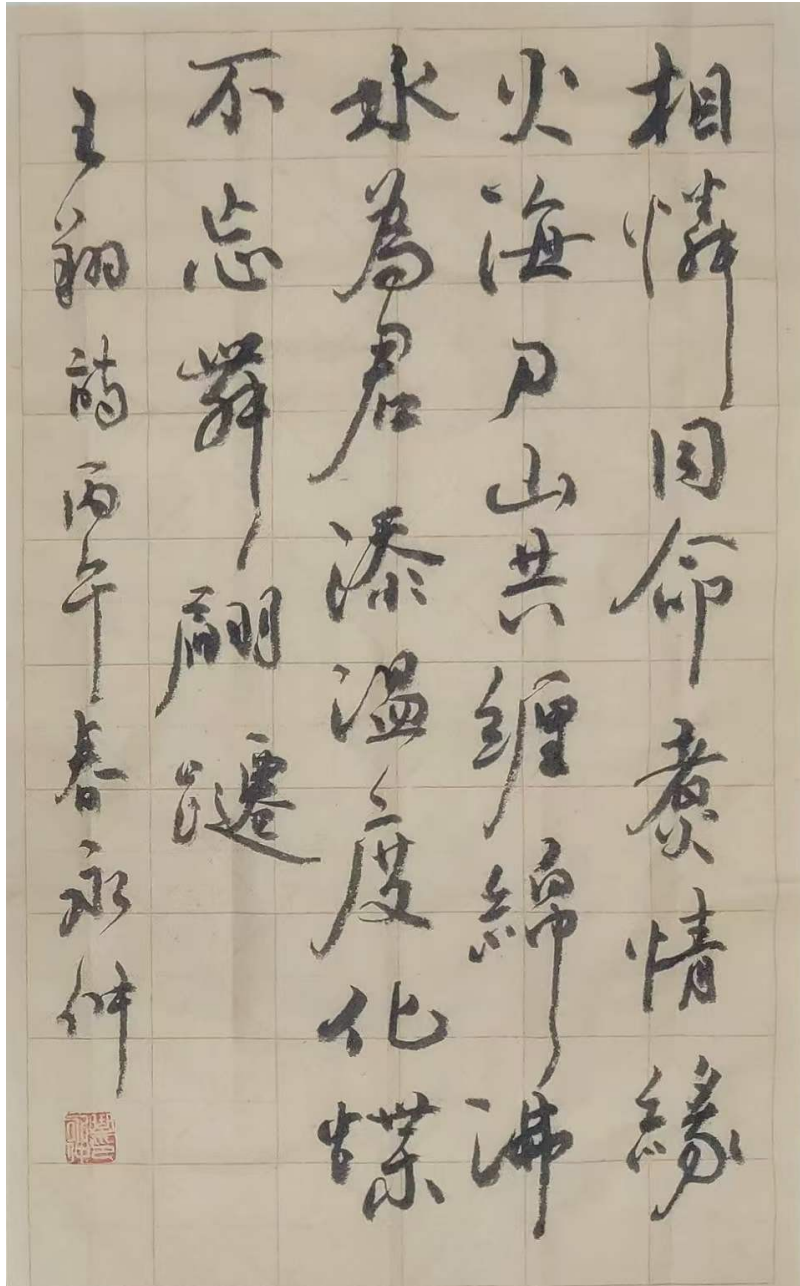 相憐同命煮情緣
火海刀山共纏綿沸
水為君添温度化蝶
不忘舞翩躚
王翔詩丙午春永仲